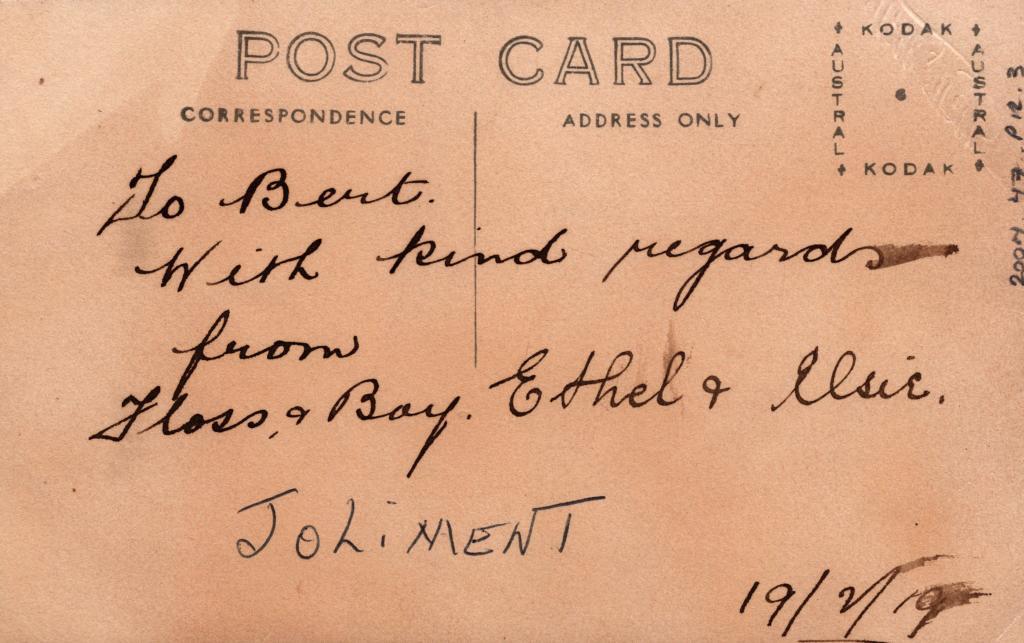 POST CARD
CORRESPONDENCE
ADDRESS ONLY
KODAK
AUSTRAL
AUSTRAL
KODAK
To Bert.
With kind regards
from
Floss, & Bay. Ethel & Elsie.
JOLiMENT
19/2/19
2004.47.P12.3